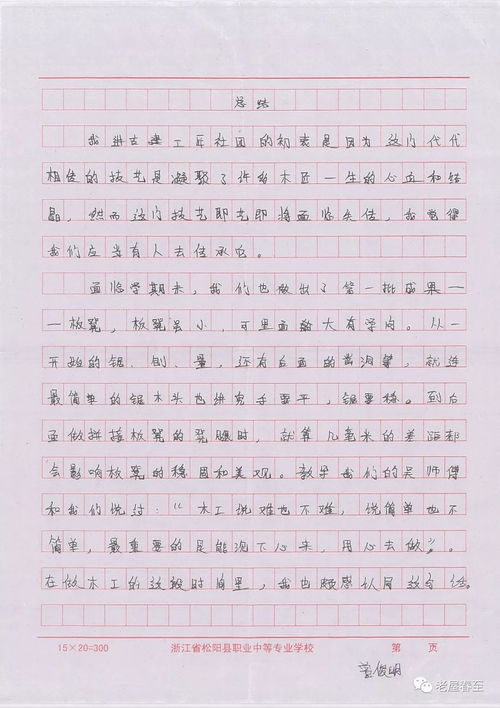 总结
我进古建工匠社团的初衷是因为这门代代
相传的技艺是凝聚了许多木匠一生的心血和结
晶，然而这门技艺即将面临失传，我觉得
我们应当有人去传承它。
面临学期末，我们也做出了第一批成果—
—板凳，板凳虽小，可里面大有学问。从一
开始的锯、刨、量，还有后面的凿洞等，就连
最简单的锯木头也手要平，锯要稳。到后
面做拼接板凳的凳腿时，就算几毫米的差距都
会影响板凳的稳固和美观。教导我们的吴师傅
和我们说过：“木工说难也不难，说简单也不
简单，最重要的是能沉下心来，用心去做”。
在做木工的这段时间里，我也颇感认同这句话。
15×20=300 浙江省松阳县职业中等专业学校 第 页
俊明
老屋春至